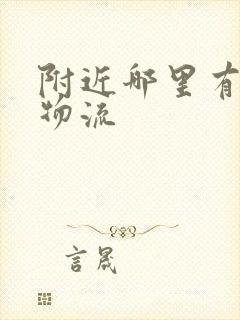 附近哪里有
物流
言晟